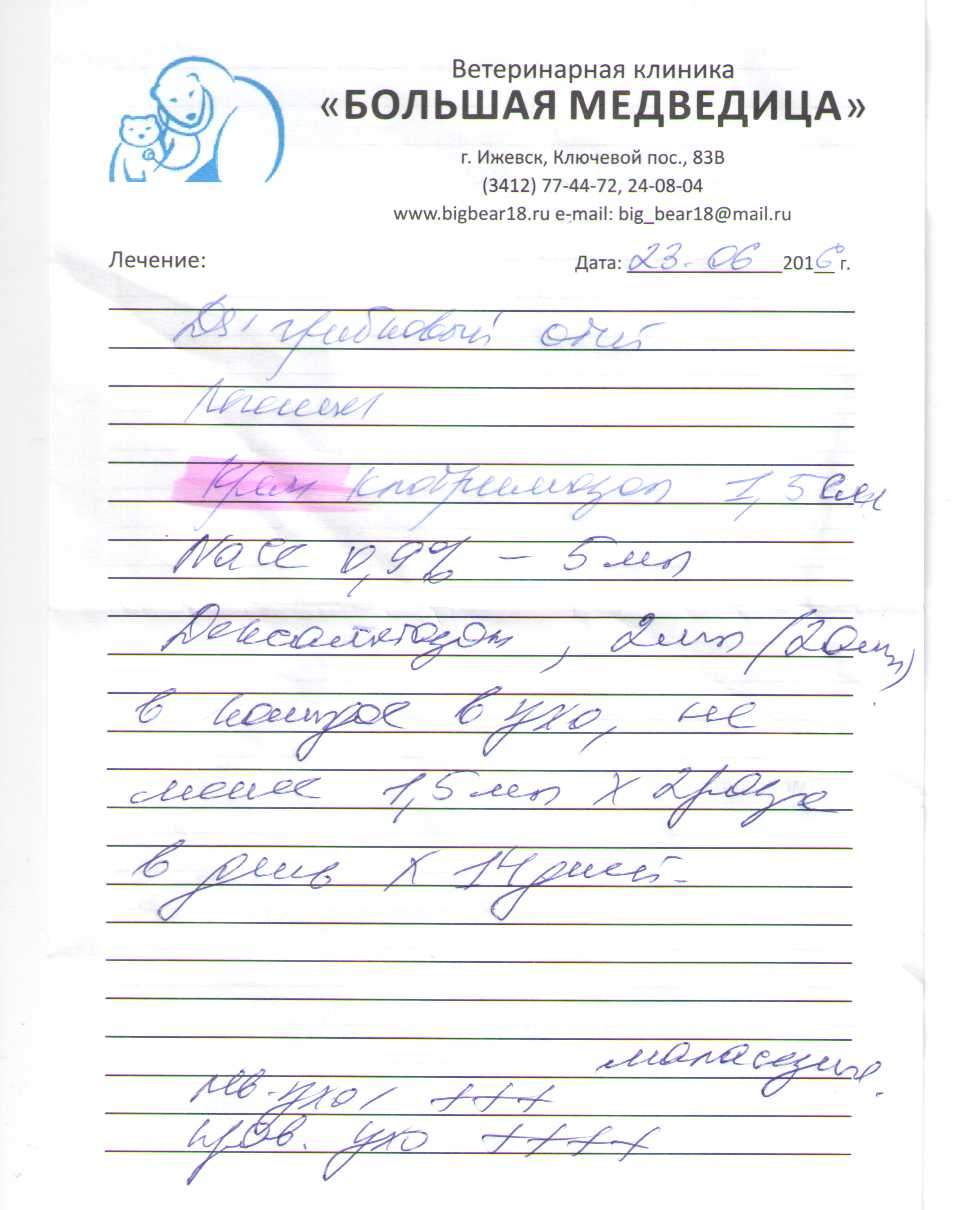 Ветеринарная клиника
«БОЛЬШАЯ МЕДВЕДИЦА»
г. Ижевск, Ключевой пос., 83В
(3412) 77-44-72, 24-08-04
www.bigbear18.ru e-mail: big_bear18@mail.ru
Лечение: Дата: 23.06 2016 г.
Ds: грибковый отит
Крем клотримазол 1,5 см
NaCl 0,9% – 5 мл
Дексаметазон, 2 мл
в ухо, не
менее 1,5 мл х 2 раза
в день х 14 дней.
малассезия.
лев. ухо, +++
прав. ухо ++++